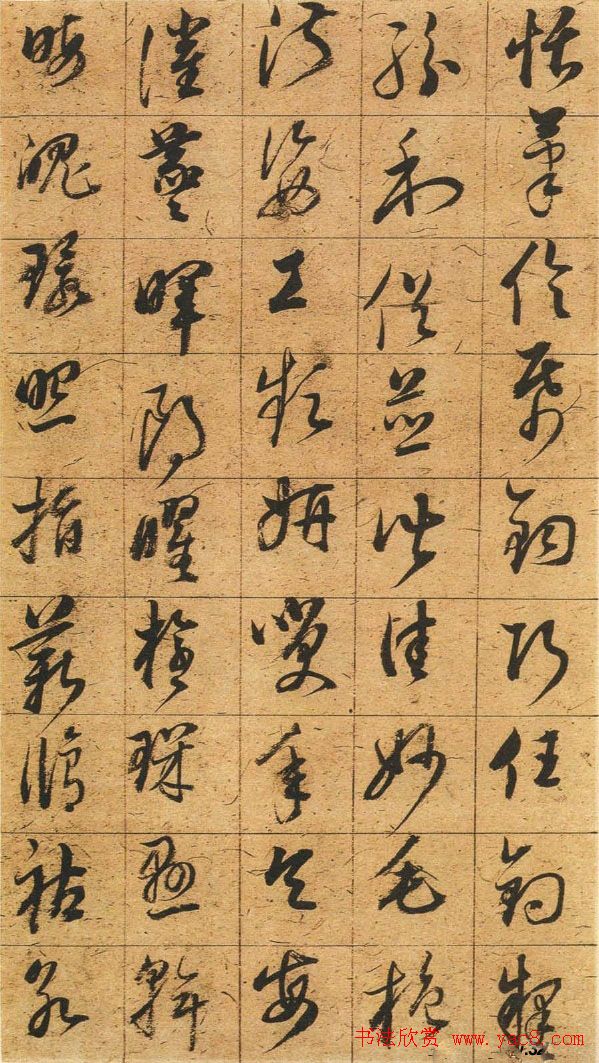 恬筆倫紙鈞巧任釣釋
紛利俗並皆佳妙毛施
淑姿工顰妍咲年矢每
催羲暉朗曜璣懸斡
晦魄環照指薪脩祜永
书法欣赏 www.yac8.com